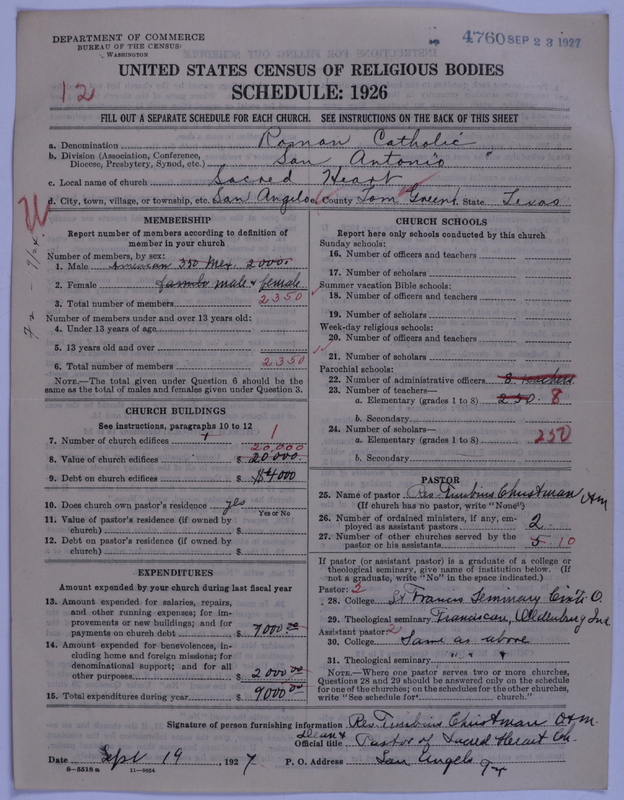 DEPARTMENT OF COMMERCE
BUREAU OF THE CENSUS
WASHINGTON
4760 SEP 23 1927
UNITED STATES CENSUS OF RELIGIOUS BODIES
SCHEDULE: 1926
12
FILL OUT A SEPARATE SCHEDULE FOR EACH CHURCH. SEE INSTRUCTIONS ON THE BACK OF THIS SHEET
a. Denomination Roman Catholic
b. Division (Association, Conference,
Diocese, Presbytery, Synod, etc.) San Antonio
c. Local name of church Sacred Heart
d. City, town, village, or township, etc. San Angelo County Tom Green State Texas
MEMBERSHIP
Report number of members according to definition of
member in your church
Number of members, by sex:
1. Male American 350 Mex. 2000
2. Female male & female
3. Total number of members 2350
Number of members under and over 13 years old:
4. Under 13 years of age
5. 13 years old and over
6. Total number of members 2350
NOTE.—The total given under Question 6 should be the
same as the total of males and females given under Question 3.
CHURCH BUILDINGS
See instructions, paragraphs 10 to 12
7. Number of church edifices 1
20,000
8. Value of church edifices $ 20000.
9. Debt on church edifices $ $4000
10. Does church own pastor's residence yes
Yes or No
11. Value of pastor's residence (if owned by
church) $
12. Debt on pastor's residence (if owned by
church) $
EXPENDITURES
Amount expended by your church during last fiscal year
13. Amount expended for salaries, repairs,
and other running expenses; for im-
provements or new buildings; and for
payments on church debt $ 7000.00
14. Amount expended for benevolences, in-
cluding home and foreign missions; for
denominational support; and for all
other purposes $ 2000.00
15. Total expenditures during year $ 9000.00
CHURCH SCHOOLS
Report here only schools conducted by this church
Sunday schools:
16. Number of officers and teachers
17. Number of scholars
Summer vacation Bible schools:
18. Number of officers and teachers
19. Number of scholars
Week-day religious schools:
20. Number of officers and teachers
21. Number of scholars
Parochial schools:
22. Number of administrative officers 8 teachers
23. Number of teachers—
a. Elementary (grades 1 to 8) 250. 8
b. Secondary
24. Number of scholars—
a. Elementary (grades 1 to 8) 250
b. Secondary
PASTOR
25. Name of pastor Rev. Turibius Christman OFM
(If church has no pastor, write "None")
26. Number of ordained ministers, if any, em-
ployed as assistant pastors 2.
27. Number of other churches served by the
pastor or his assistants 5 10
If pastor (or assistant pastor) is a graduate of a college or
theological seminary, give name of institution below. (If
not a graduate, write "No" in the space indicated.)
Pastor: 2
28. College St Francis Seminary Cinti O.
29. Theological seminary Franciscan, Oldenburg Ind
Assistant pastor: 2
30. College Same as above
31. Theological seminary " " "
NOTE.—Where one pastor serves two or more churches,
Questions 28 and 29 should be answered only on the schedule
for one of the churches; on the schedules for the other churches,
write "See schedule for church."
Signature of person furnishing information Rev. Turibius Christman OFM.
Official title Dean & Pastor of Sacred Heart Ch.
Date Sept 19, 1927 P. O. Address San Angelo Tx
8-5518 a 11-9654